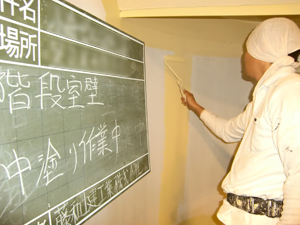 件名
場所
階段室壁
中塗り作業中